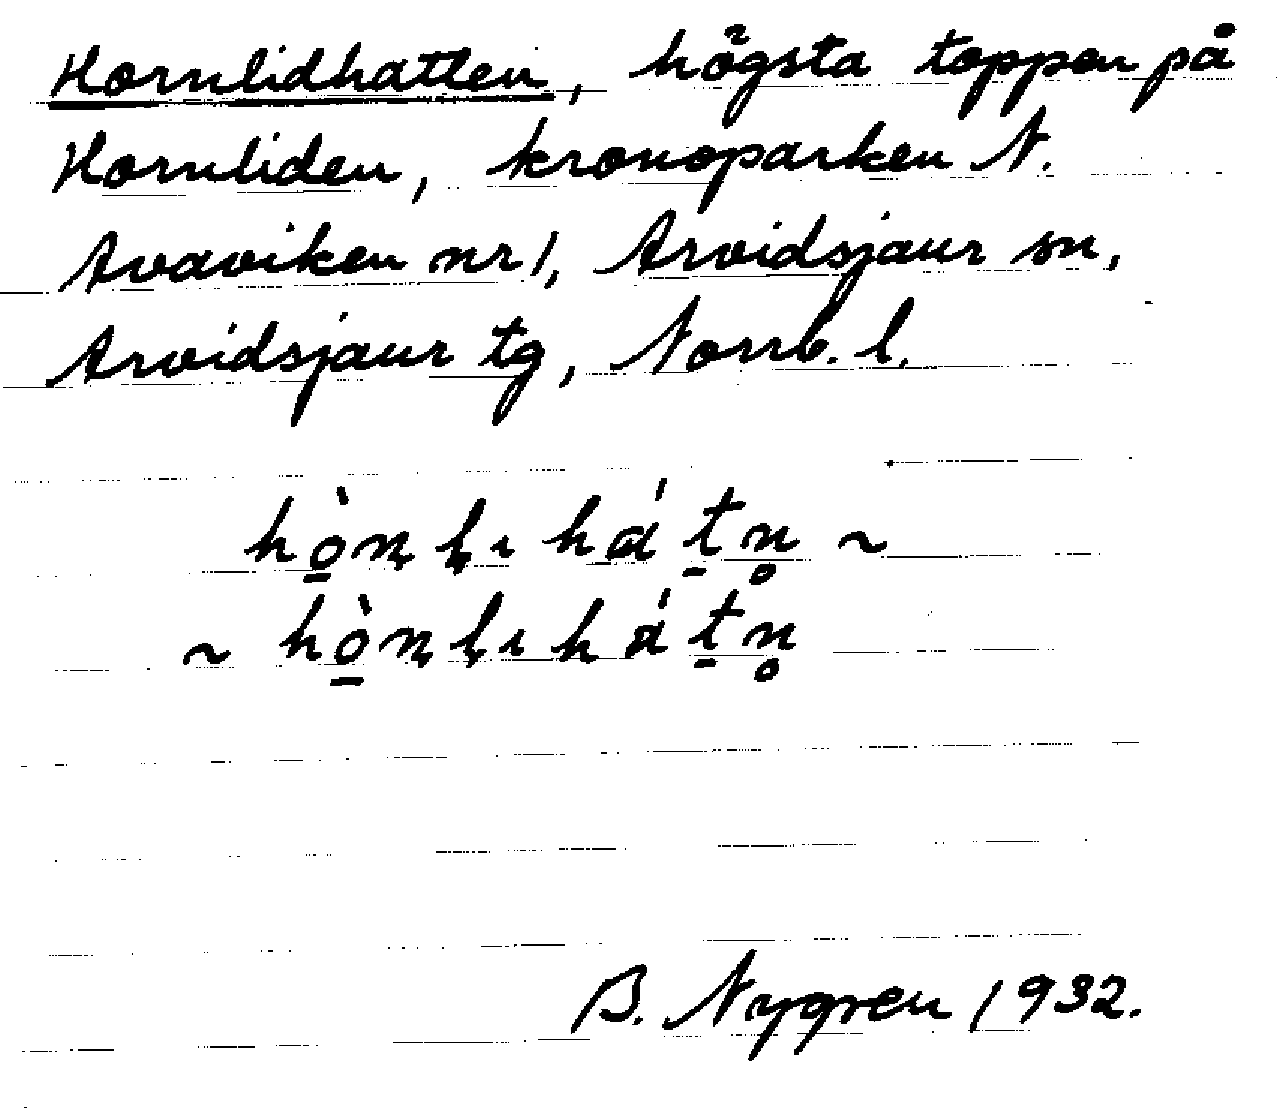 Hornlidhatten, högsta toppen på
Hornliden, kronoparken N.
Avaviken nr 1, Arvidsjaur sn,
Arvidsjaur tg, Norrb. l.
hò̱ɳɭıhá't̠n̥ ~
~ hò̱ɳɭıhá't̠n̥
B. Nygren 1932.